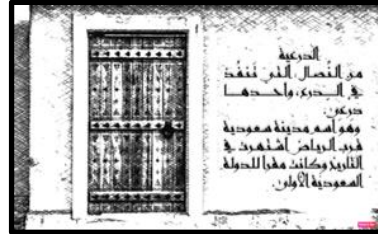 الدرعية
من النصال التي تنفذ
في الدرع، واحدها
درعي
وهو اسم مدينة سعودية
قرب الرياض اشتهرت في
التاريخ وكانت مقرا للدولة
السعودية الأولى